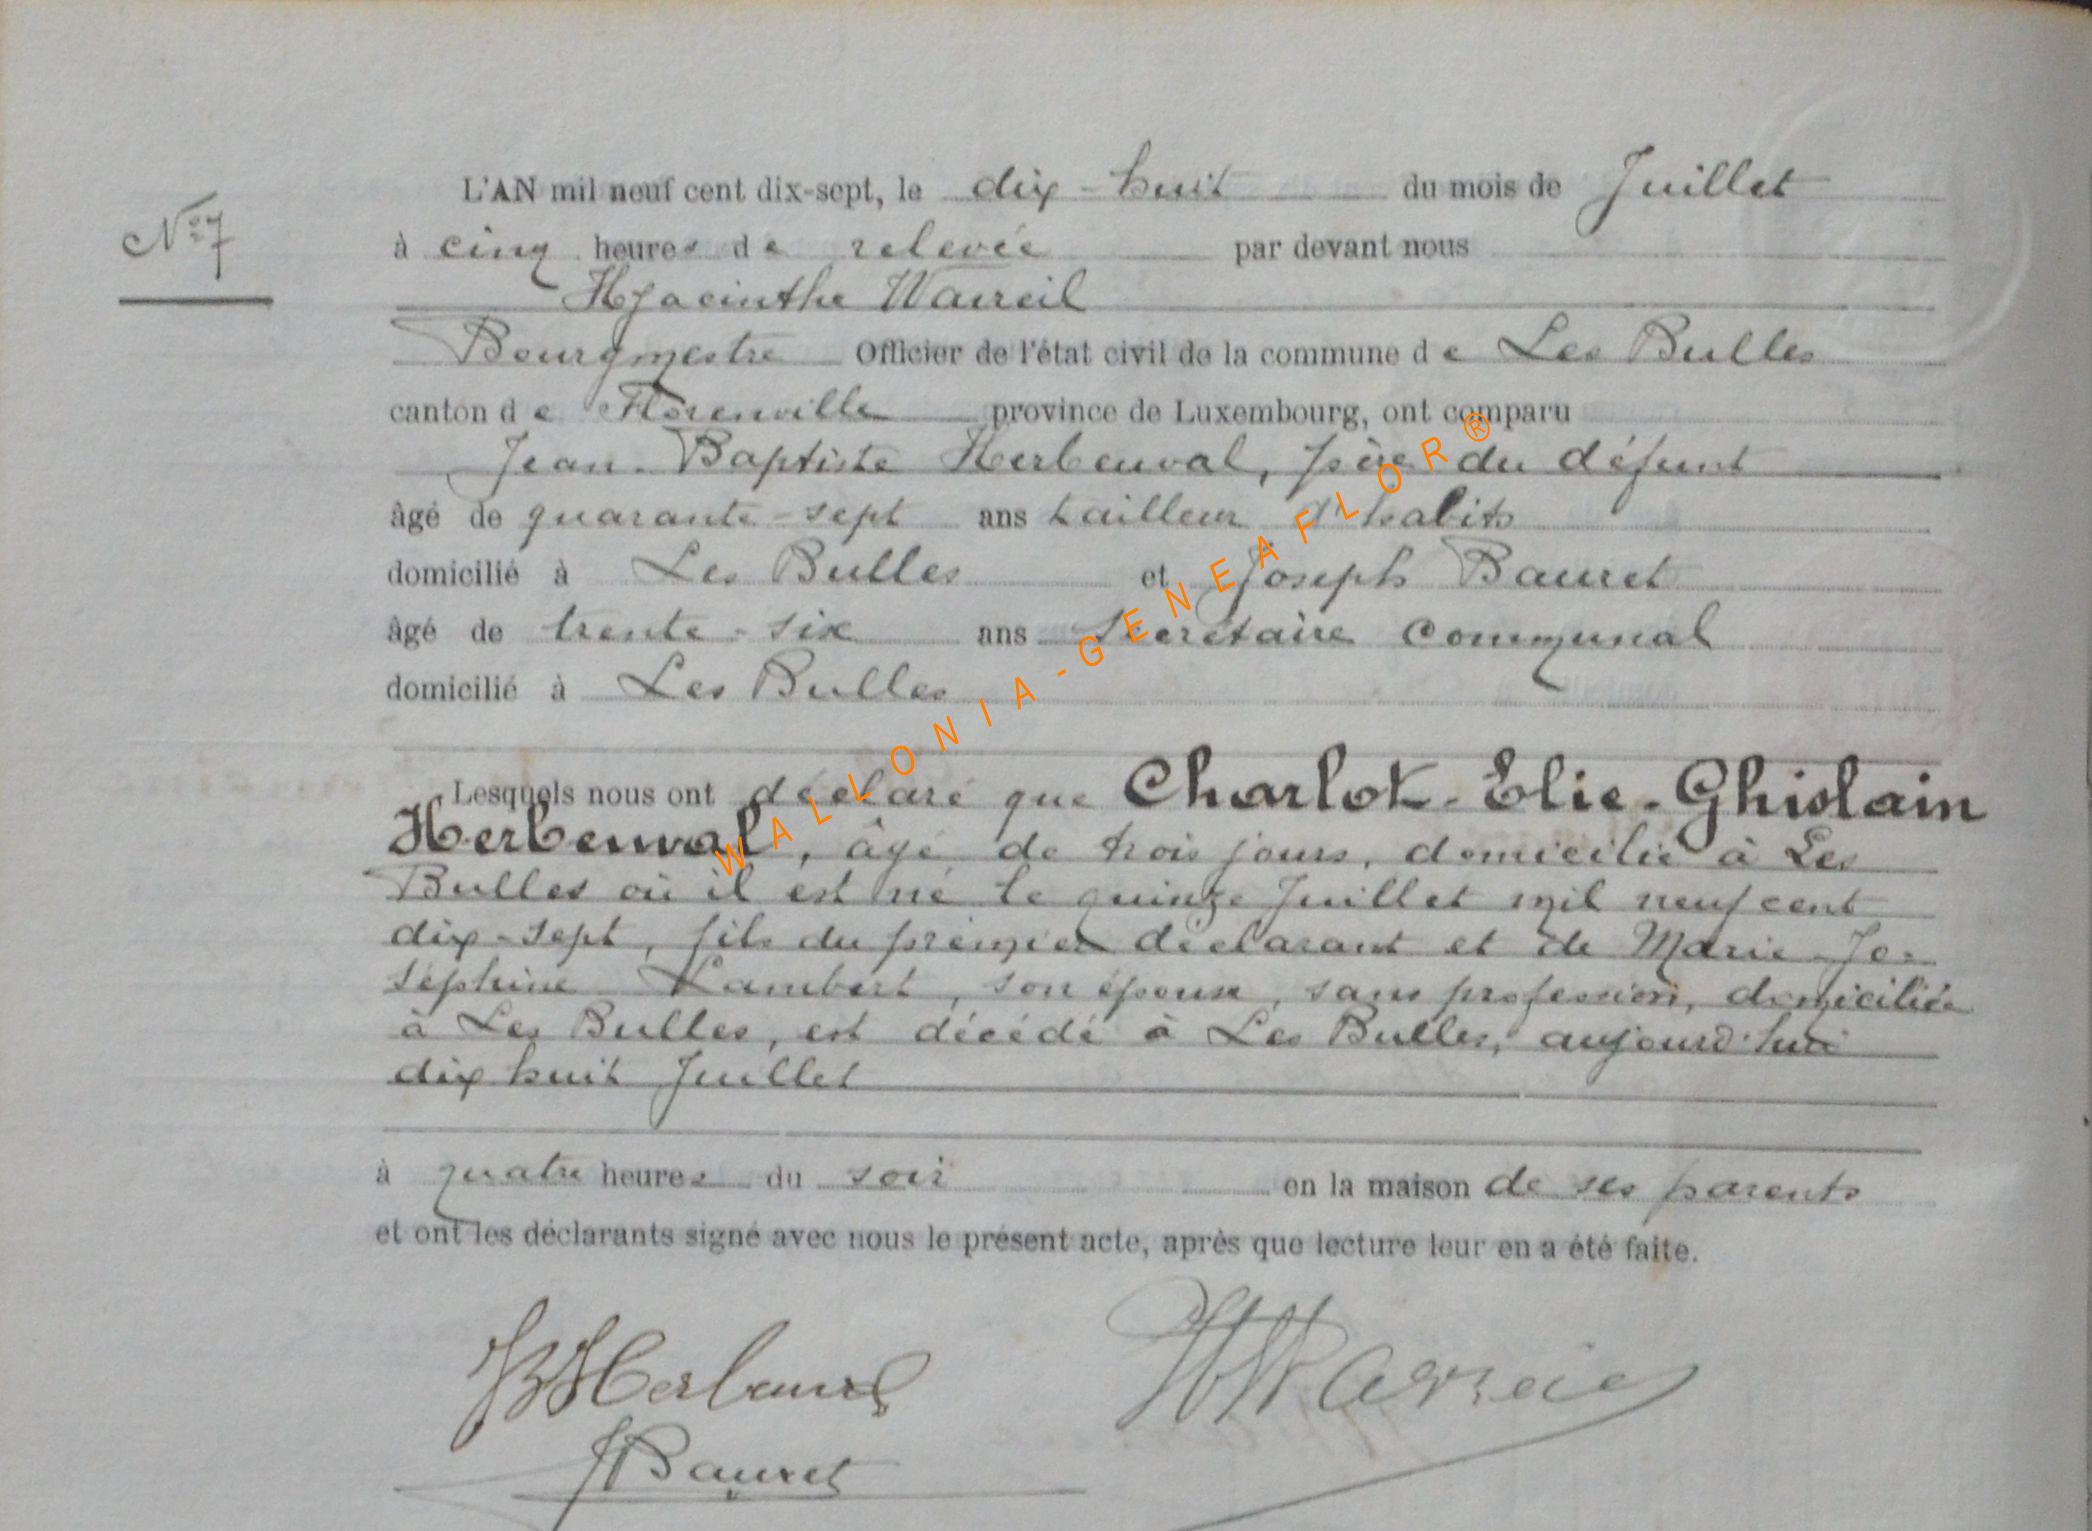 N° 7
L'AN mil neuf cent dix-sept, le dix-huit du mois de Juillet
à cinq heures de relevée par devant nous
Hyacinthe Warreil
Bourgmestre Officier de l'état civil de la commune de Les Bulles
canton de Florenville province de Luxembourg, ont comparu
Jean-Baptiste Herbeuval, père du défunt
âgé de quarante-sept ans tailleur d'habits
domicilié à Les Bulles et Joseph Bauret
âgé de trente-six ans Secrétaire communal
domicilié à Les Bulles
Lesquels nous ont déclaré que Charlot-Elie-Ghislain
Herbeuval, âgé de trois jours, domicilié à Les
Bulles où il est né le quinze Juillet mil neuf cent
dix-sept, fils du premier déclarant et de Marie-Jo-
séphine Lambert, son épouse, sans profession, domiciliée
à Les Bulles, est décédé à Les Bulles, aujourd'hui
dix huit Juillet
à quatre heures du soir en la maison de ses parents
et ont les déclarants signé avec nous le présent acte, après que lecture leur en a été faite.
JBHerbeuval
HWarreil
JBauret
WALLONIA-GENEAFLOR®